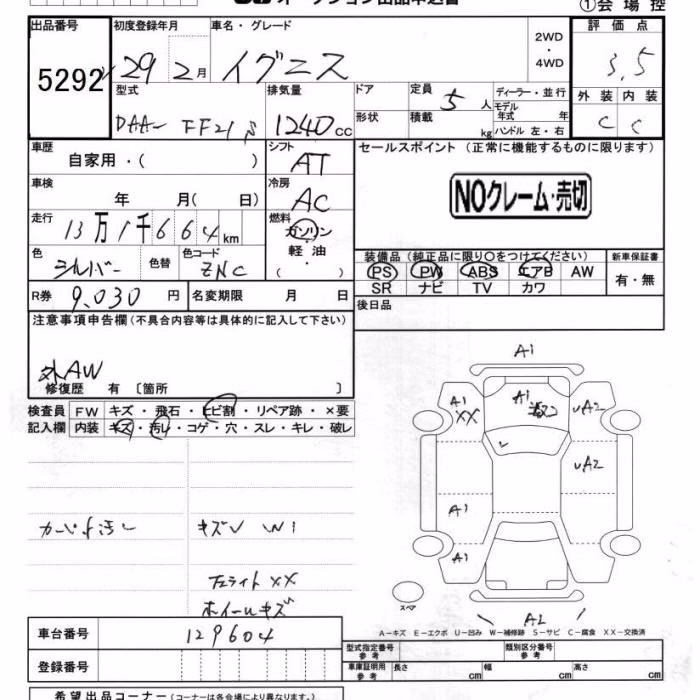 オークション出品申込書
①会場控
出品番号
5292
初度登録年月
29 2月
車名・グレード
イグニス
2WD
・
4WD
評価点
3.5
型式
DAA- FF21S
排気量
1240cc
ドア
形状
定員
5人
積載
kg
ディーラー・並行
モデル年式 年
ハンドル 左・右
外装 内装
C C
車歴
自家用・( )
シフト
AT
セールスポイント(正常に機能するものに限ります)
NOクレーム・売切
車検
年 月( 日)
冷房
AC
走行
13万1千664km
燃料
ガソリン
軽・油
( )
色
シルバー
色替
色コード
ZNC
装備品(純正品に限り○をつけてください)
PS PW ABS エアB AW
SR ナビ TV カワ
新車保証書
有・無
R券
9,030円
名変期限 月 日
後日品
注意事項申告欄(不具合内容等は具体的に記入して下さい)
外AW
修復歴 有〔箇所 〕
検査員記入欄
FW キズ・飛石・ヒビ割・リペア跡・×要
内装 キズ・汚れ・コゲ・穴・スレ・キレ・破レ
A1
A1 XX
A1
UA2
UA2
A1
A1
カーペット汚レ
キズV W1
左ライトXX
ホイールキズ
スペア
A2
A-キズ E-エクボ U-凹み W-補修跡 S-サビ C-腐食 XX-交換済
車台番号
129604
登録番号
型式指定番号 参考
類別区分番号 参考
車庫証明用 参考
長さ cm
幅 cm
高さ cm
希望出品コーナー(コーナーは各会場により異なります。)